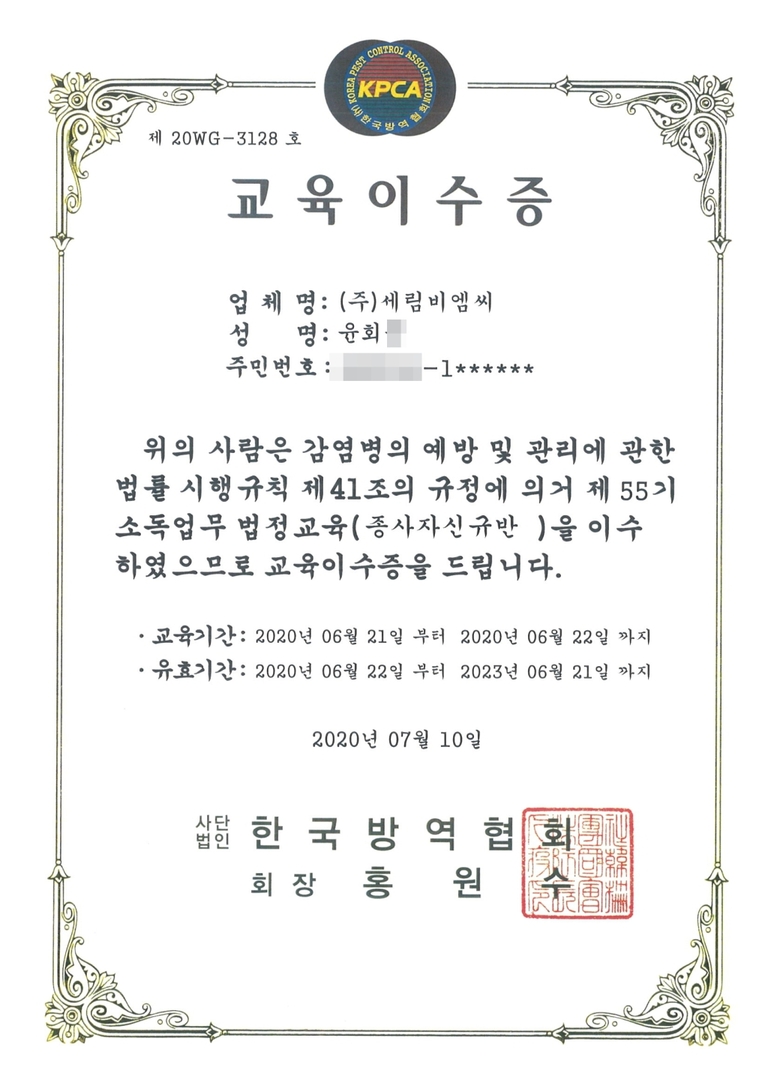 KOREA PEST CONTROL ASSOCIATION
KPCA
(사)한국방역협회
제 20WG-3128 호
교육이수증
업 체 명: (주)세림비엠씨
성 명: 윤회
주민번호: -1******
위의 사람은 감염병의 예방 및 관리에 관한
법률 시행규칙 제41조의 규정에 의거 제 55기
소독업무 법정교육(종사자신규반 )을 이수
하였으므로 교육이수증을 드립니다.
· 교육기간: 2020년 06월 21일 부터 2020년 06월 22일 까지
· 유효기간: 2020년 06월 22일 부터 2023년 06월 21일 까지
2020년 07월 10일
사단법인 한국방역협회
회장 홍원수